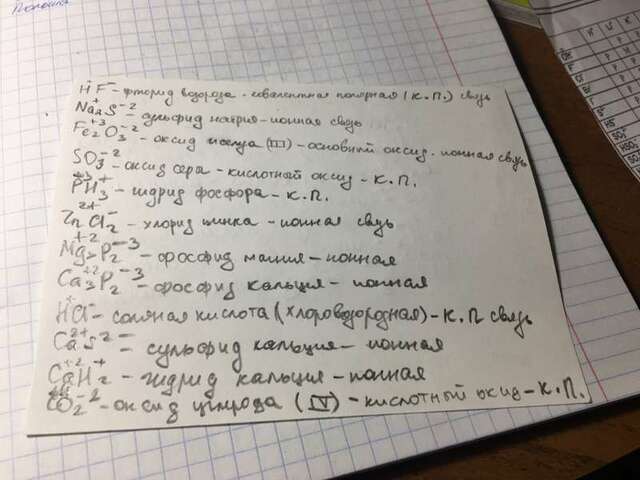 HF - фторид водорода - ковалентная полярная (к.п.) связь
Na₂S - сульфид натрия - ионная связь
Fe₂O₃ - оксид (III) - основный оксид - ионная связь
SO₃ - оксид сера - кислотной оксид - к.п.
PH₃ - гидрид фосфора - к.п.
ZnCl₂ - хлорид цинка - ионная связь
Mg₃P₂ - фосфид магния - ионная
Ca₃P₂ - фосфид кальция - ионная
HCl - соляная кислота (хлороводородная) - к.п связь
CaS - сульфид кальция - ионная
CaH₂ - гидрид кальция - ионная
CO₂ - оксид углерода (IV) - кислотный оксид - к.п.